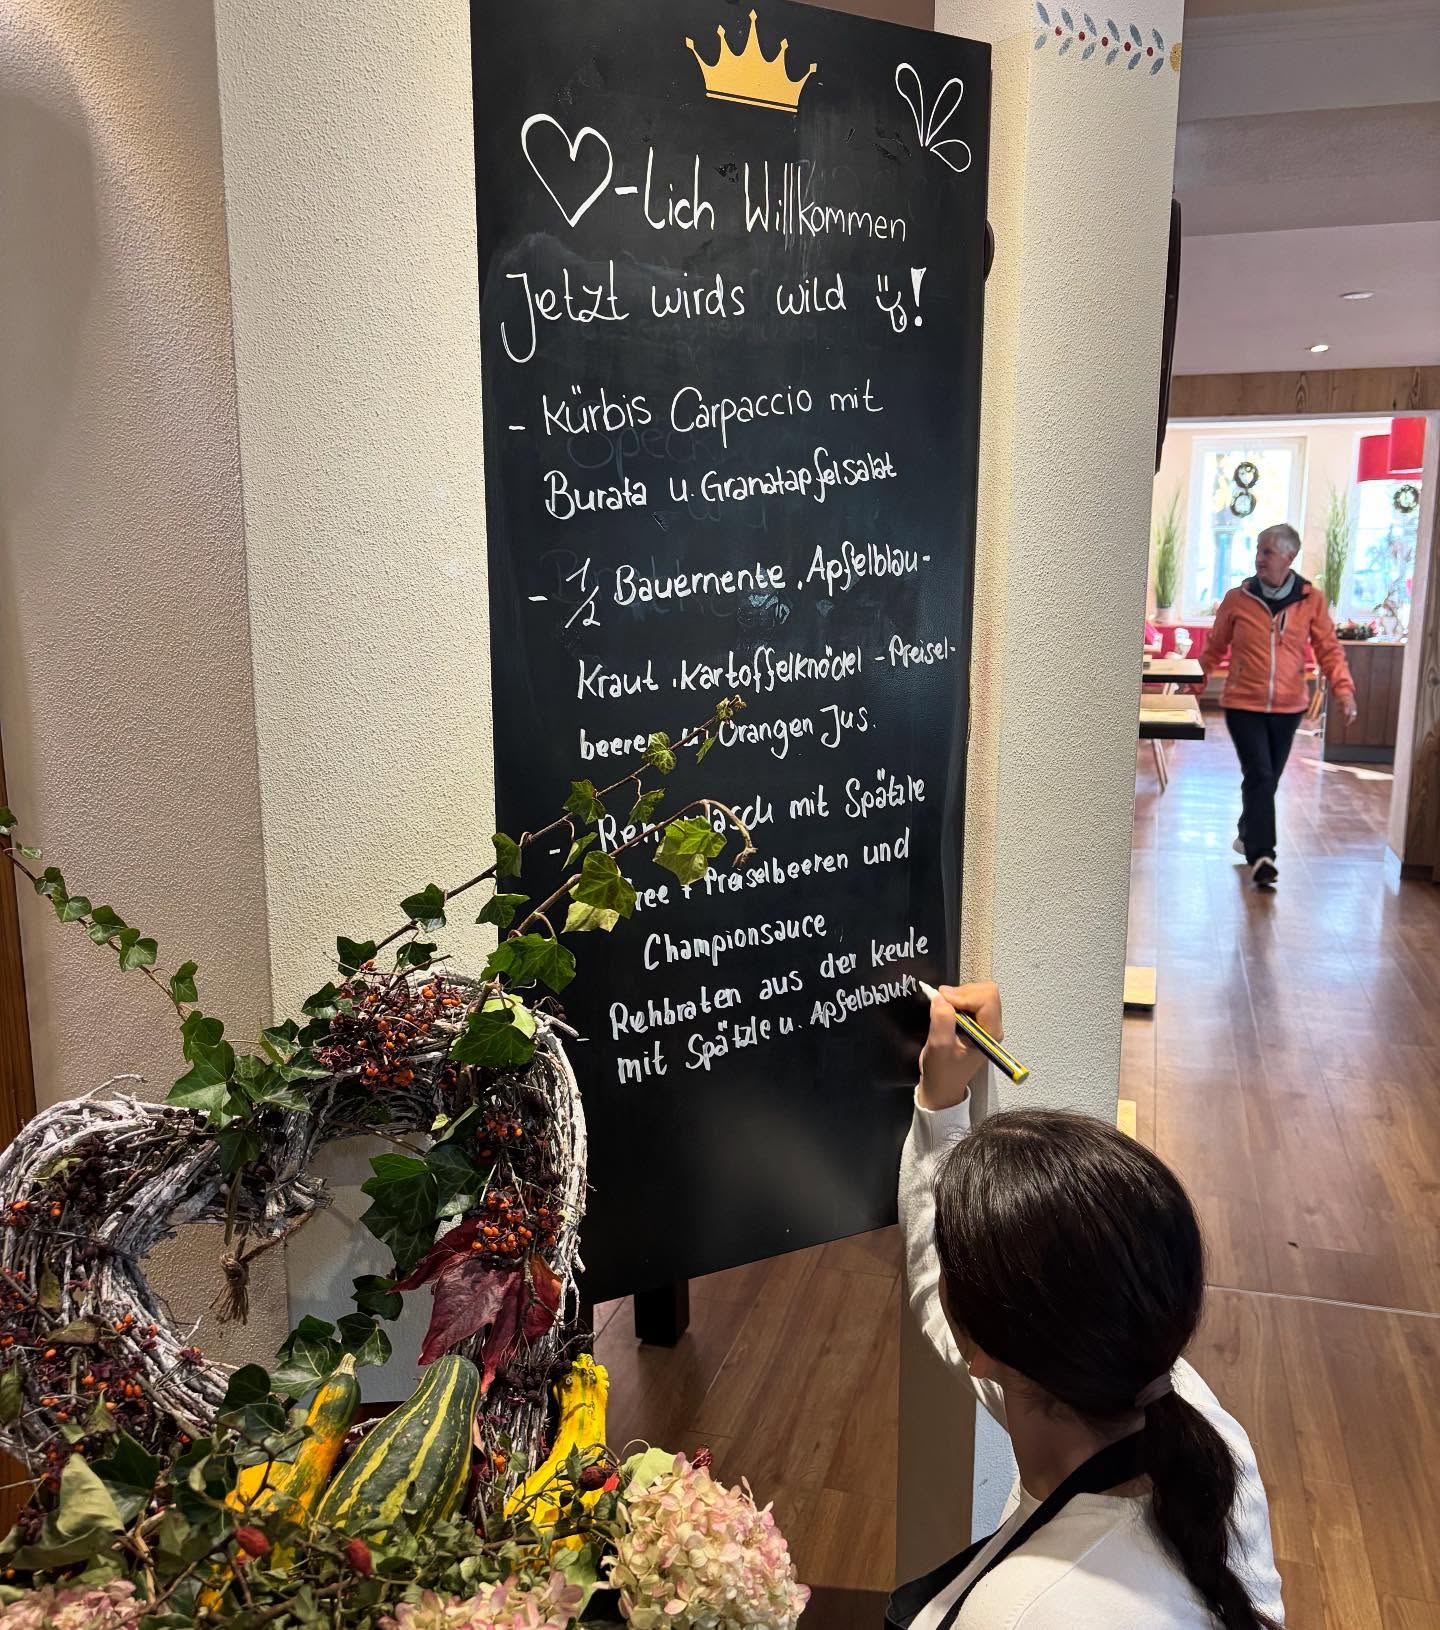 -lich Willkommen
Jetzt wirds wild !
- Kürbis Carpaccio mit
Burata u. Granatapfelsalat
- 1/2 Bauernente , Apfelblau-
Kraut , Kartoffelknödel - Preisel-
beeren u. Orangen Jus.
- mit Spätzle
+ Preiselbeeren und
Championsauce
- Rehbraten aus der Keule
mit Spätzle u. Apfelblaukr